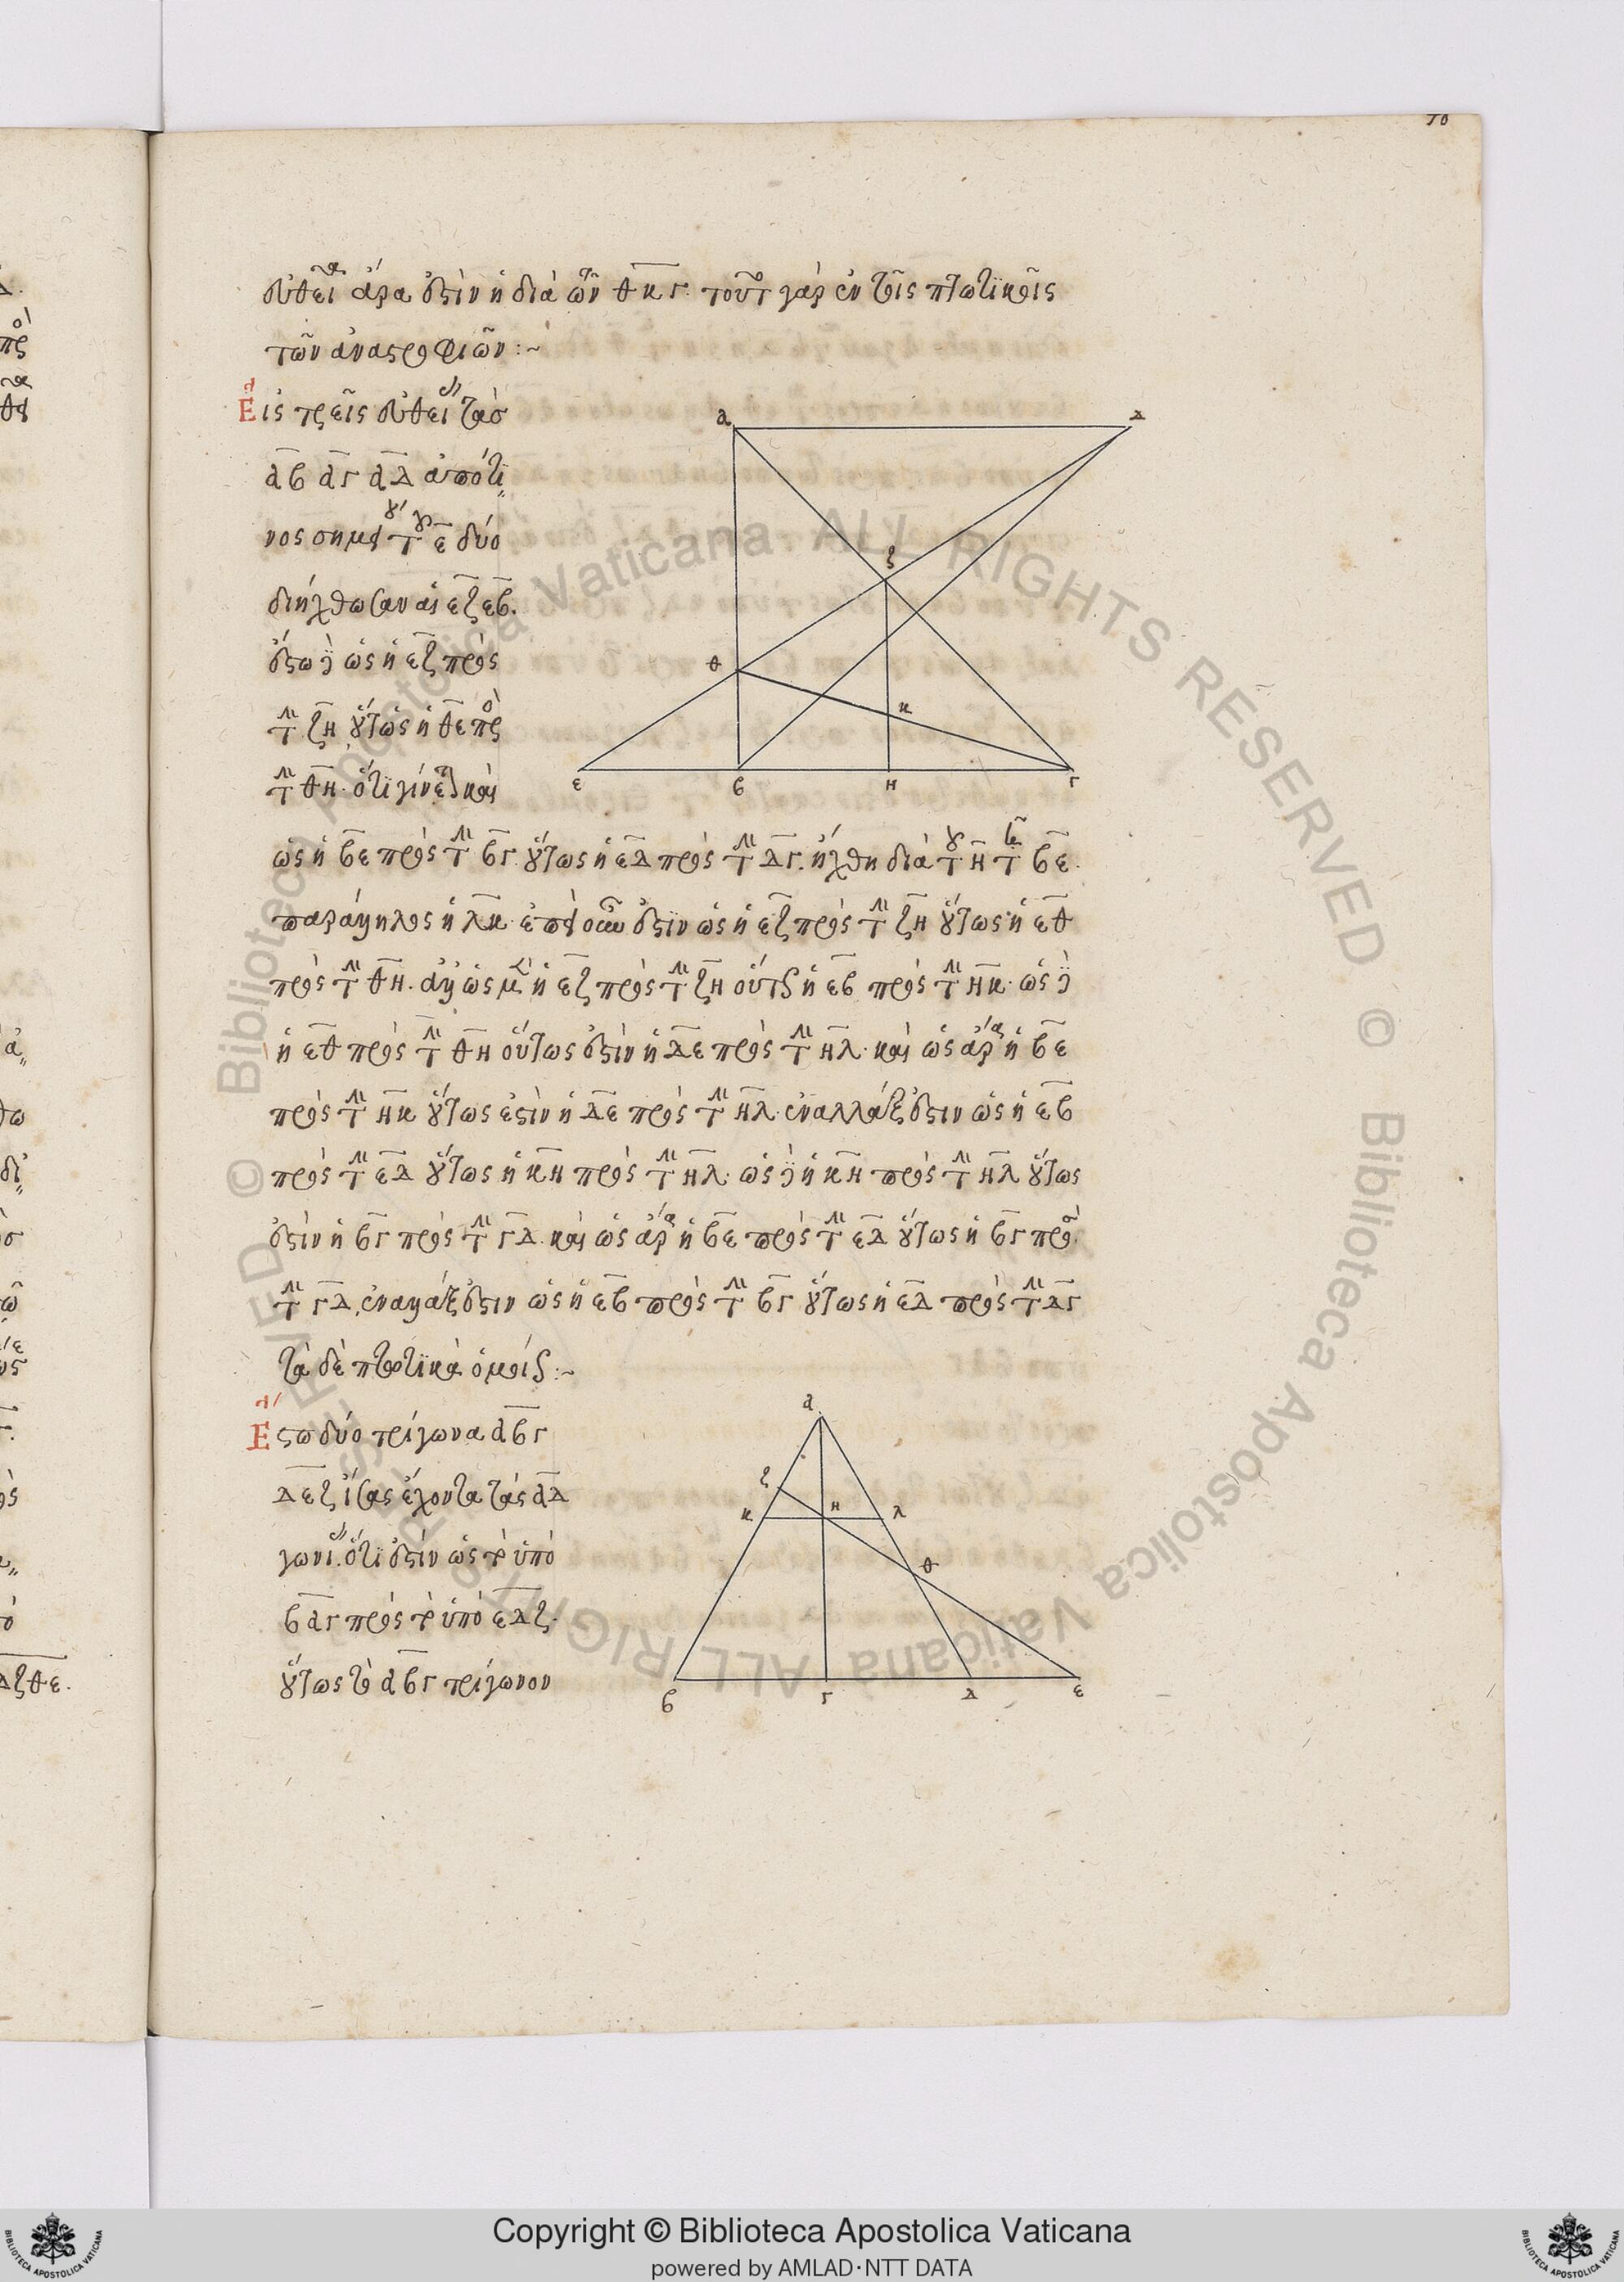 εὐθεῖα ἄρα ἐστὶν ἡ διὰ τῶν θ κ γ. τοῦτο γὰρ ἐν τοῖς πτωτικοῖς
τῶν ἀναστροφίων :~
Εἰς τρεῖς εὐθείας τὰς
αβ αγ αδ ἀπό τι
νος σημείου τοῦ ε δύο
διήχθωσαν αἱ εζ εβ.
ἔστω δὲ ὡς ἡ εζ πρὸς
τὴν ζη οὕτως ἡ θε πρὸς
τὴν θη. ὅτι γίνεται καὶ
ὡς ἡ βε πρὸς τὴν βγ οὕτως ἡ εδ πρὸς τὴν δγ. ἤχθη διὰ τοῦ η τῇ βε
παράλληλος ἡ λκ. ἐπεὶ οὖν ἐστιν ὡς ἡ εζ πρὸς τὴν ζη οὕτως ἡ εθ
πρὸς τὴν θη. ἀλλ' ὡς μὲν ἡ εζ πρὸς τὴν ζη οὕτως ἡ εβ πρὸς τὴν ηκ. ὡς δὲ
ἡ εθ πρὸς τὴν θη οὕτως ἐστὶν ἡ δε πρὸς τὴν ηλ. καὶ ὡς ἄρα ἡ βε
πρὸς τὴν ηκ οὕτως ἐστὶν ἡ δε πρὸς τὴν ηλ. ἐναλλάξ ἐστιν ὡς ἡ εβ
πρὸς τὴν εδ οὕτως ἡ κη πρὸς τὴν ηλ. ὡς δὲ ἡ κη πρὸς τὴν ηλ οὕτως
ἐστὶν ἡ βγ πρὸς τὴν γδ. καὶ ὡς ἄρα ἡ βε πρὸς τὴν εδ οὕτως ἡ βγ πρὸς
τὴν γδ. ἐναλλάξ ἐστιν ὡς ἡ εβ πρὸς τὴν βγ οὕτως ἡ εδ πρὸς τὴν δγ
τὰ δὲ πτωτικὰ ὁμοίως :~
Ἔστω δύο τρίγωνα αβγ
δεζ ἴσας ἔχοντα τὰς αδ
γωνίας. ὅτι ἐστὶν ὡς τὸ ὑπὸ
βαγ πρὸς τὸ ὑπὸ εδζ.
οὕτως τὸ αβγ τρίγωνον
α δ
ζ
θ
κ
ε β η γ
α
ζ
κ η λ
θ
β γ δ ε
© Biblioteca Apostolica Vaticana ALL RIGHTS RESERVED © Biblioteca Apostolica Vaticana ALL RIGHTS RESERVED
Copyright © Biblioteca Apostolica Vaticana
powered by AMLAD·NTT DATA
BIBLIOTECA APOSTOLICA VATICANA
BIBLIOTECA APOSTOLICA VATICANA